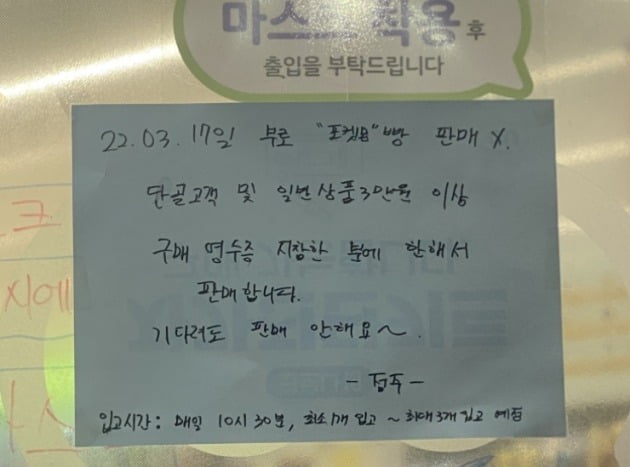 마스크 착용 후
출입을 부탁드립니다
22.03. 17일 부로 "포켓몬"빵 판매 X.
단골고객 및 일반상품3만원 이상
구매 영수증 지참한 분에 한해서
판매합니다.
기다려도 판매 안해요~.
-점주-
입고시간: 매일 10시 30분, 최소1개 입고 ~ 최대3개 입고 예정
크
지에